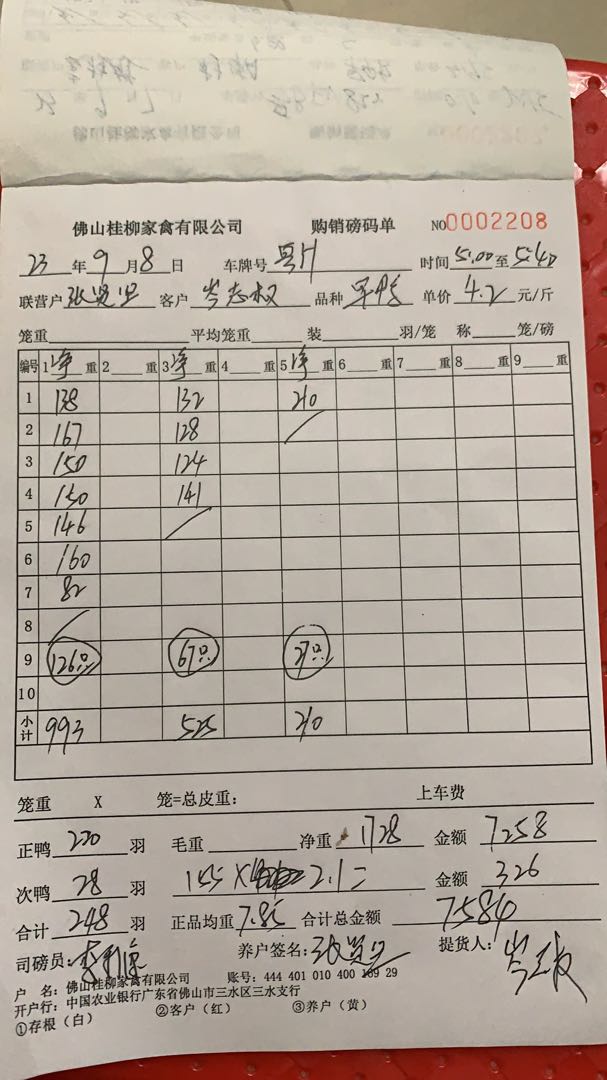 佛山桂柳家禽有限公司 购销磅码单 NO0002208
23年9月8日 车牌号 时间5:00至5:40
联营户 客户岑志权 品种 单价4.2元/斤
笼重 平均笼重 装 羽/笼 称 笼/磅
编号 1净重 2 重 3净重 4 重 5净重 6 重 7 重 8 重 9 重
1 138 132 210
2 167 128
3 150 124
4 150 141
5 146
6 160
7 82
8
9 126只 67只 27只
10
小计 993 525 210
笼重 X 笼=总皮重: 上车费
正鸭220羽 毛重 净重1728 金额7258
次鸭28羽 155X 2.1= 金额326
合计248羽 正品均重7.85 合计总金额7584
司磅员: 养户签名: 提货人:
户 名: 佛山桂柳家禽有限公司 账号: 444 401 010 400 169 29
开户行: 中国农业银行广东省佛山市三水区三水支行
①存根(白) ②客户(红) ③养户(黄)